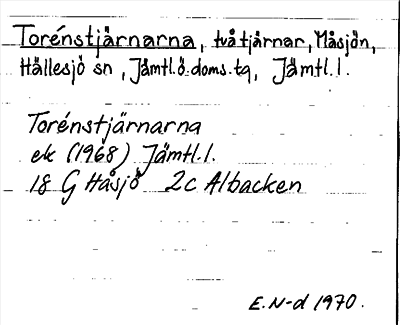 Torénstjärnarna, två tjärnar, Måsjön,
Hällesjö sn, Jämtl.ö.doms.tg, Jämtl.l.
Torénstjärnarna
ek (1968) Jämtl.l.
18 G Håsjö 2c Albacken
E.N-d 1970.